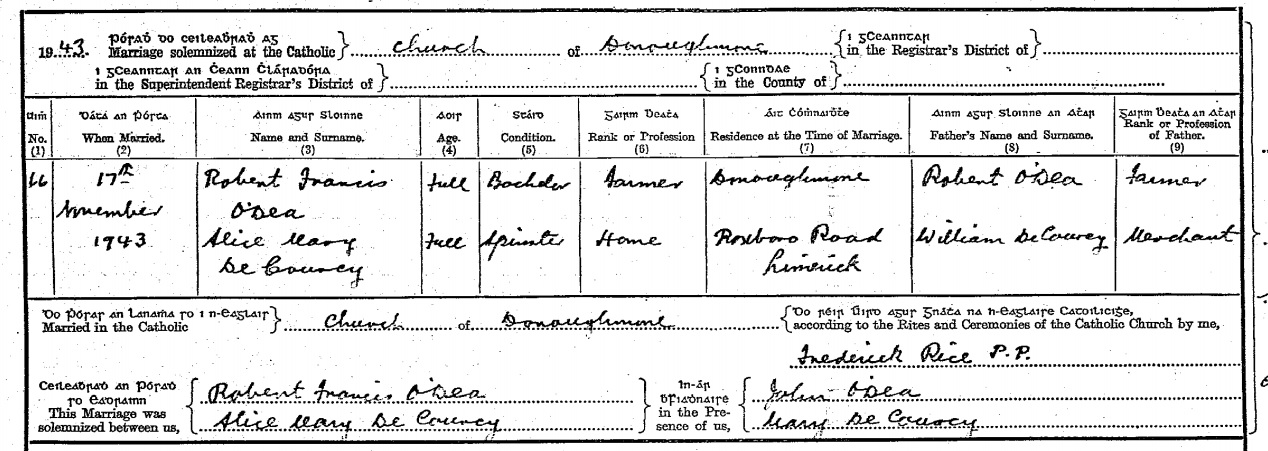 1943. Pósaḋ do ceileaḃraḋ ag Marriage solemnized at the Catholic } Church of Donoughmore { i gCeanntar in the Registrar's District of }
i gCeanntar an Ċeann Ċláraḋóra in the Superintendent Registrar's District of } { i gConndae in the County of }
Uiṁ Dáta an Pósta Ainm agus Sloinne Aois Stáid Gairm Beaṫa Áit Ċóṁnaiḋṫe Ainm agus Sloinne an Aṫar Gairm Beaṫa an Aṫar
No. When Married. Name and Surname. Age. Condition. Rank or Profession Residence at the Time of Marriage. Father's Name and Surname. Rank or Profession of Father.
(1) (2) (3) (4) (5) (6) (7) (8) (9)
66 17th Robert Francis Full Bachelor Farmer Donoughmore Robert O'Dea Farmer
November O'Dea
1943 Alice Mary Full Spinster Home Roxboro Road William De Courcy Merchant
De Courcy Limerick
Do pósaḋ an lanaṁa so i n-eaglais Married in the Catholic } Church of Donoughmore { Do réir Uird agus Gnáṫa na h-eaglaise Catoilicíġe, according to the Rites and Ceremonies of the Catholic Church by me,
Frederick Rice P.P.
Ceileaḃraḋ an Pósaḋ so eadrainn This Marriage was solemnized between us, { Robert Francis O'Dea } in-ár ḃfiaḋnaise in the Presence of us, { John O'Dea
Alice Mary De Courcy Mary De Courcy